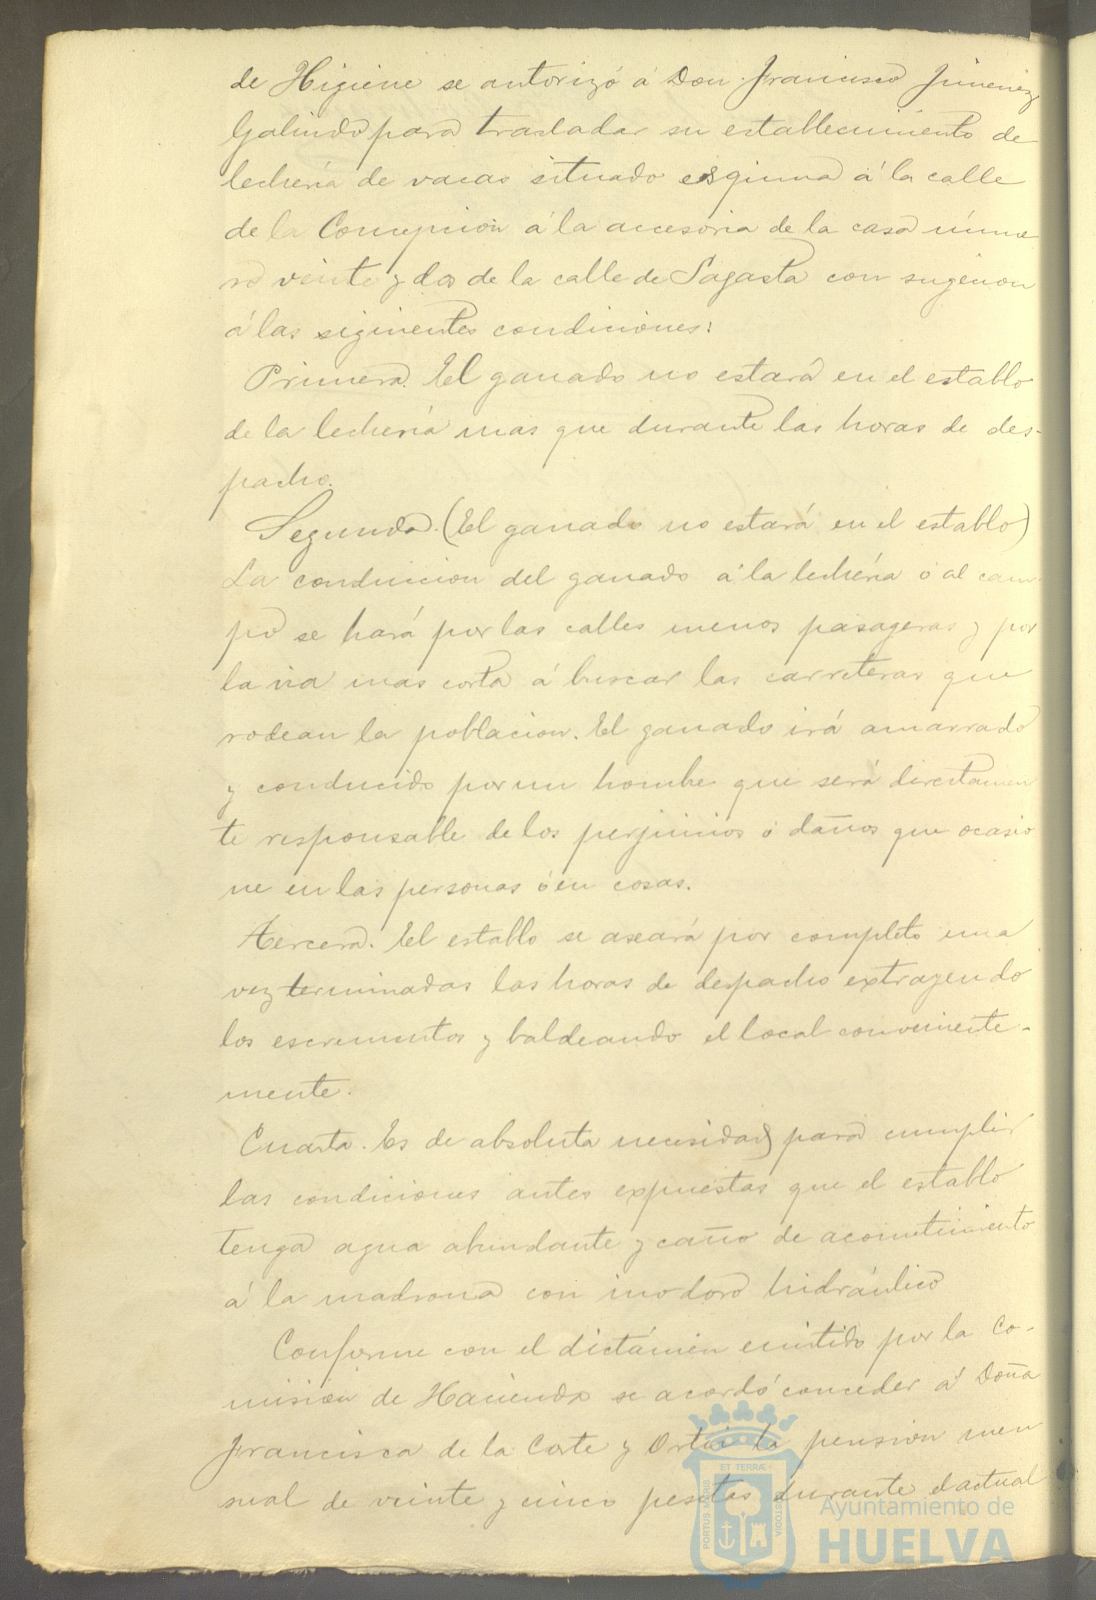 de Higiene se autorizó á Don Francisco Jimenez
Galindo para trasladar su establecimiento de
lecheria de vacas situado esquina á la calle
de la Concepcion á la accesoria de la casa núme
ro veinte y dos de la calle de Sagasta con sugecion
á las siguientes condiciones:
Primera. El ganado no estará en el establo
de la lechería mas que durante las horas de des-
pacho.
Segunda. (El ganado no estará en el establo)
La conduccion del ganado á la lechéria ó al cam-
po se hará por las calles menos pasageras y por
la via mas corta á buscar las carreteras que
rodean la poblacion. El ganado irá amarrado
y conducido por un hombre que será directamen
te responsable de los perjuicios ó daños que ocasio
ne en las personas ó en cosas.
Tercera. El establo se aseará por completo una
vez terminadas las horas de despacho extrayendo
los escrementos y baldeando el local conveniente-
mente.
Cuarta. Es de absoluta necesidad para cumplir
las condiciones antes expuestas que el establo
tenga agua abundante y caño de acometimiento
á la madrona con inodoro hidráulico
Conforme con el dictámen emitido por la Co-
mision de Hacienda se acordó conceder á Doña
Francisca de la Corte y Ortiz la pension men
sual de veinte y cinco pesetas durante el actual
PORTUS MARIS ET TERRÆ CUSTODIA
Ayuntamiento de
HUELVA